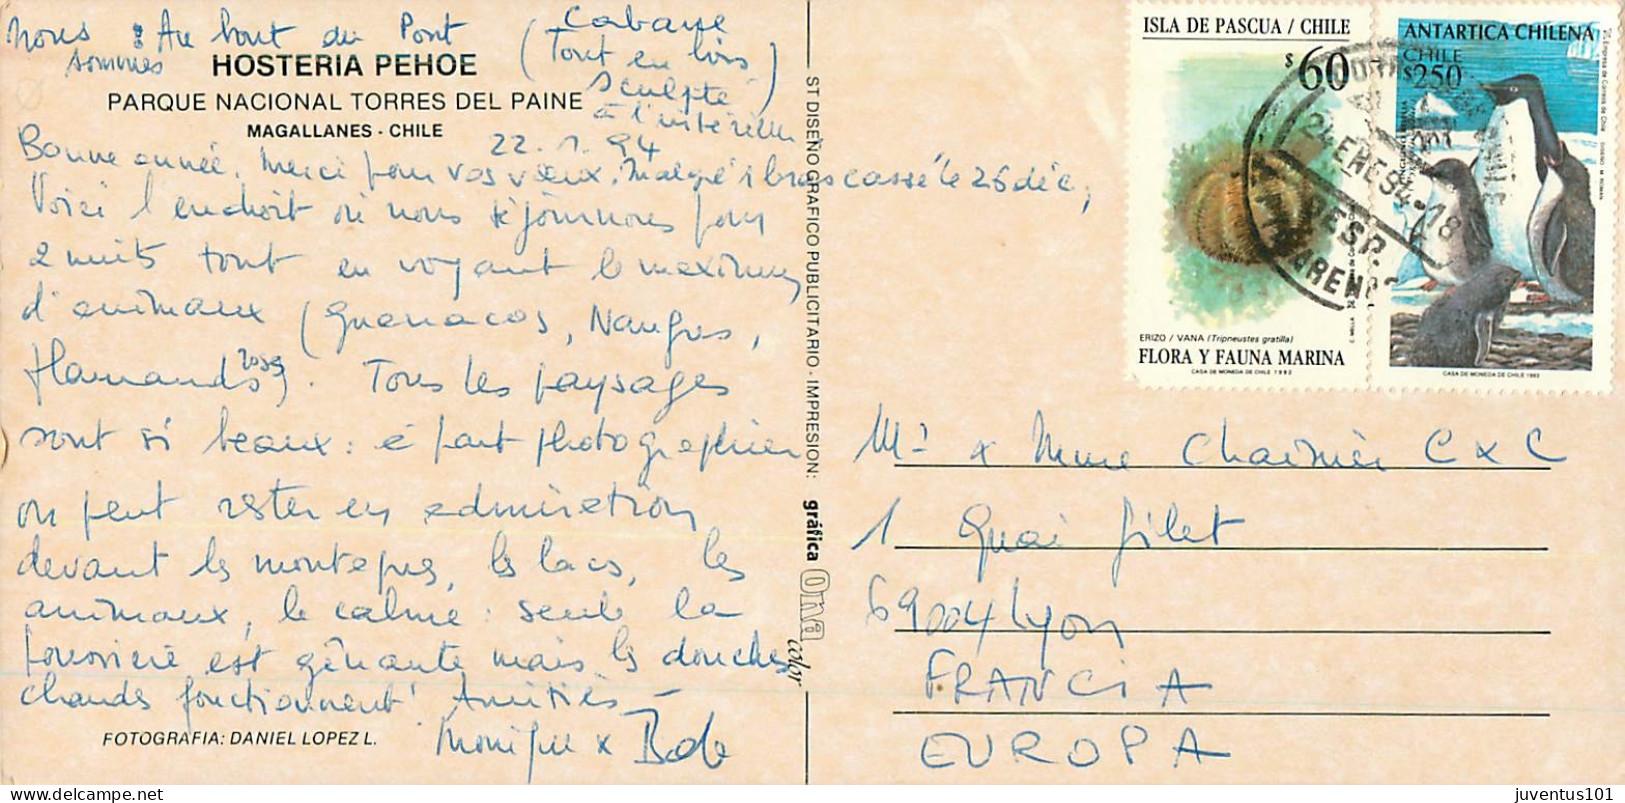 nous sommes : Au bout du Pont ( Cabane
Tout en bois
sculpté
à l'intérieur )
HOSTERIA PEHOE
PARQUE NACIONAL TORRES DEL PAINE
MAGALLANES - CHILE
22.1.94
Bonne année. Merci pour vos voeux. Malgré 1 bras cassé le 26 déc,
Voici l'endroit où nous séjournons pour
2 nuits tout en voyant le maximum
d'animaux (Guanacos, Nandous,
Flamands roses). Tous les paysages
sont si beaux : à part photographier
on peut rester en admiration
devant les montagnes, les lacs, les
animaux, le calme : seule la
poussière est gênante mais les douches
chaudes fonctionnent ! Amitiés -
Monique x Bob
FOTOGRAFIA: DANIEL LOPEZ L.
ST DISEÑO GRAFICO PUBLICITARIO - IMPRESION: gráfica Ona color
ISLA DE PASCUA / CHILE
$60
ERIZO / VANA (Tripneustes gratilla)
FLORA Y FAUNA MARINA
CASA DE MONEDA DE CHILE 1992
ANTARTICA CHILENA
CHILE
$250
CASA DE MONEDA DE CHILE 1993
24 ENE 94-18
ESP.
ARENAS
Mr x Mme Charnier C x C
1 Quai Gilet
69004 Lyon
FRANCIA
EUROPA
delcampe.net
juventus101